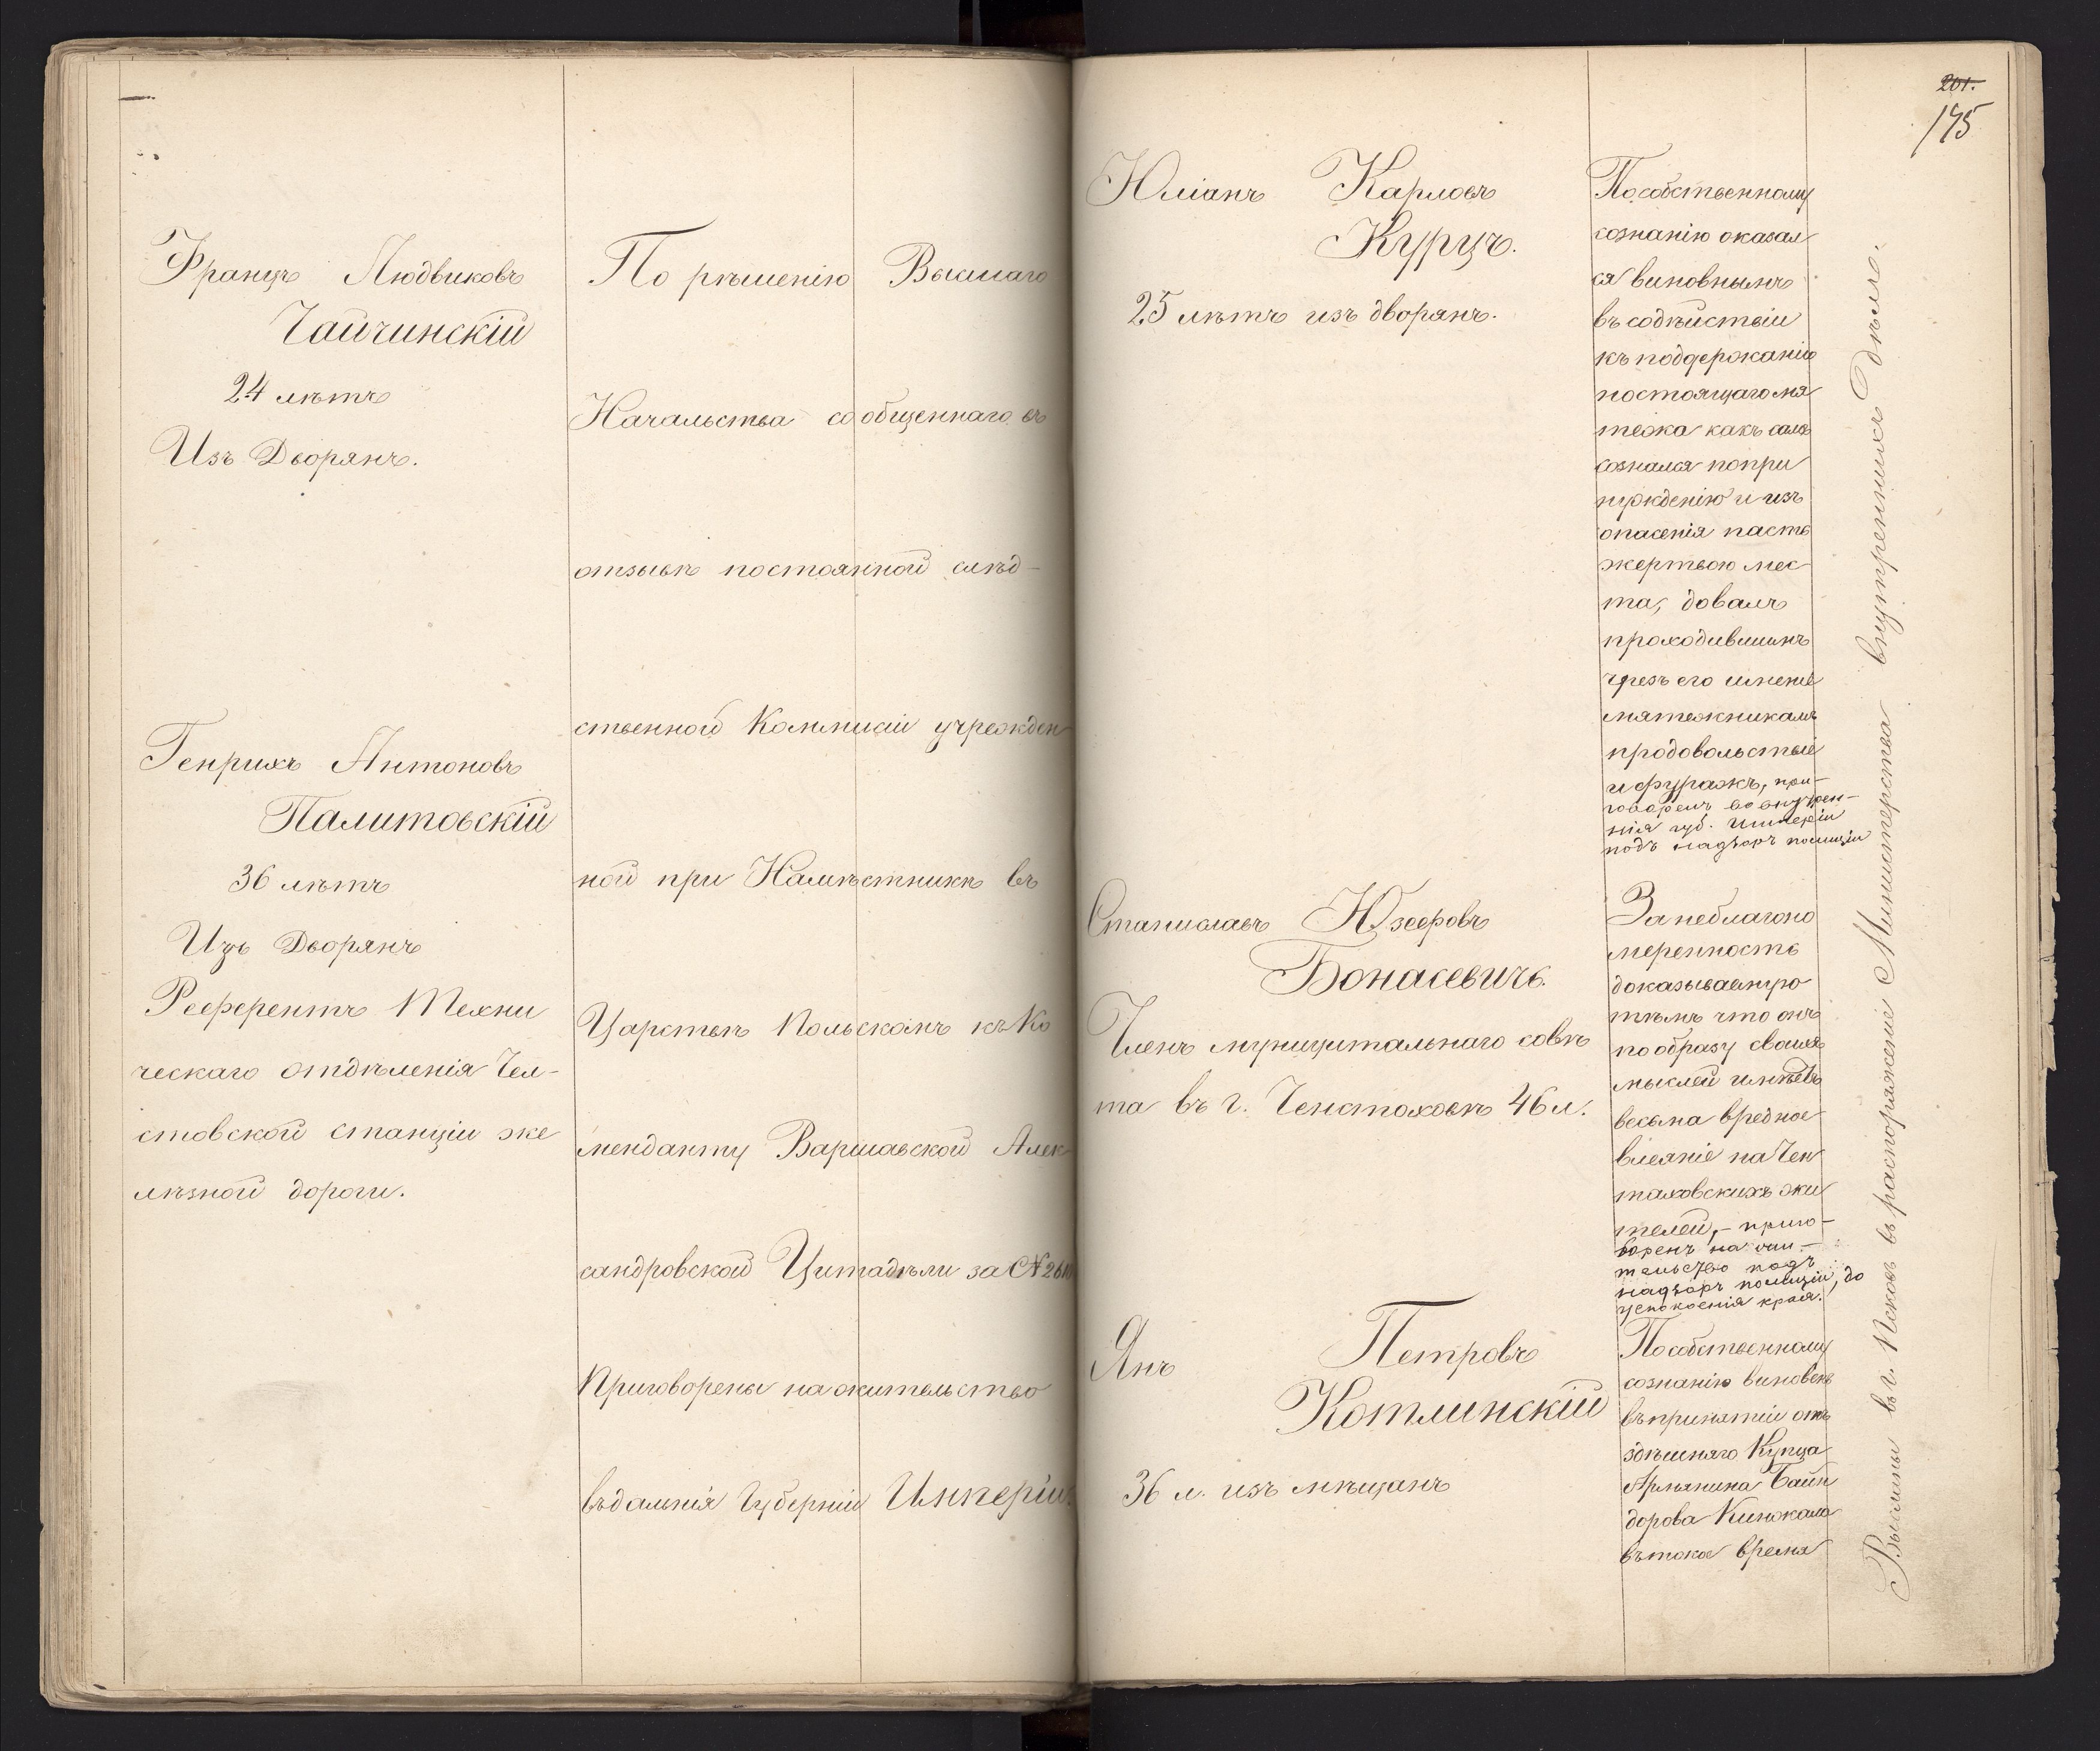 Францъ Людвиковъ
Чайчинскій
24 лѣтъ
Изъ Дворянъ.
Генрихъ Антоновъ
Палитовскій
36 лѣтъ
Изъ Дворянъ
Референтъ Техни
ческаго отдѣленія Чен-
стовской станціи же
лѣзной дороги.
По рѣшенію Высшаго
Начальства сообщеннаго въ
отзывѣ постоянной слѣд-
ственной Коммисіи учрежден
ной при Намѣстникѣ въ
Царствѣ Польскомъ къ Ко
менданту Варшавской Алек
сандровской Цитадѣли за №
Приговорены на жительство
въ дальнія Губерніи Имперіи.
201.
175
Юліанъ Карловъ
Куруъ.
25 лѣтъ изъ дворянъ.
По собственному
сознанію оказал
ся виновнымъ
въ содѣйствіи
къ поддержанію
настоящаго мя
тежа какъ самъ
сознался по при
нужденію и изъ
опасенія пасть
жертвою мес
та, довалъ
проходившимъ
чрезъ его имѣніе
мятежникамъ
продовольствіе
и фуражъ, при-
говоренъ во внутрен-
нія губ. Имперіи
подъ надзоръ полиціи
Станиславъ Юзефовъ
Бонасевичъ.
Членъ муниципальнаго совѣ
та въ г. Ченстоховѣ 46 л.
За неблагона
меренность
доказываемую
тѣмъ что онъ
по образу своихъ
мыслей имѣетъ
весьма вредное
вліяніе на Чен
таховскихъ жи
телей,- приго-
воренъ на жи-
тельство подъ
надзоръ полиціи, до
успокоенія края.
Янъ Петровъ
Котлинскій
36 л. изъ мѣщанъ
По собственному
сознанію виновенъ
въ принятіи отъ
здѣшняго Купца
Армянина Байн
дорова Кинжала
въ тоже время
Высланы въ г. Псковъ въ распоряженіе Министерства внутреннихъ Дѣлъ.